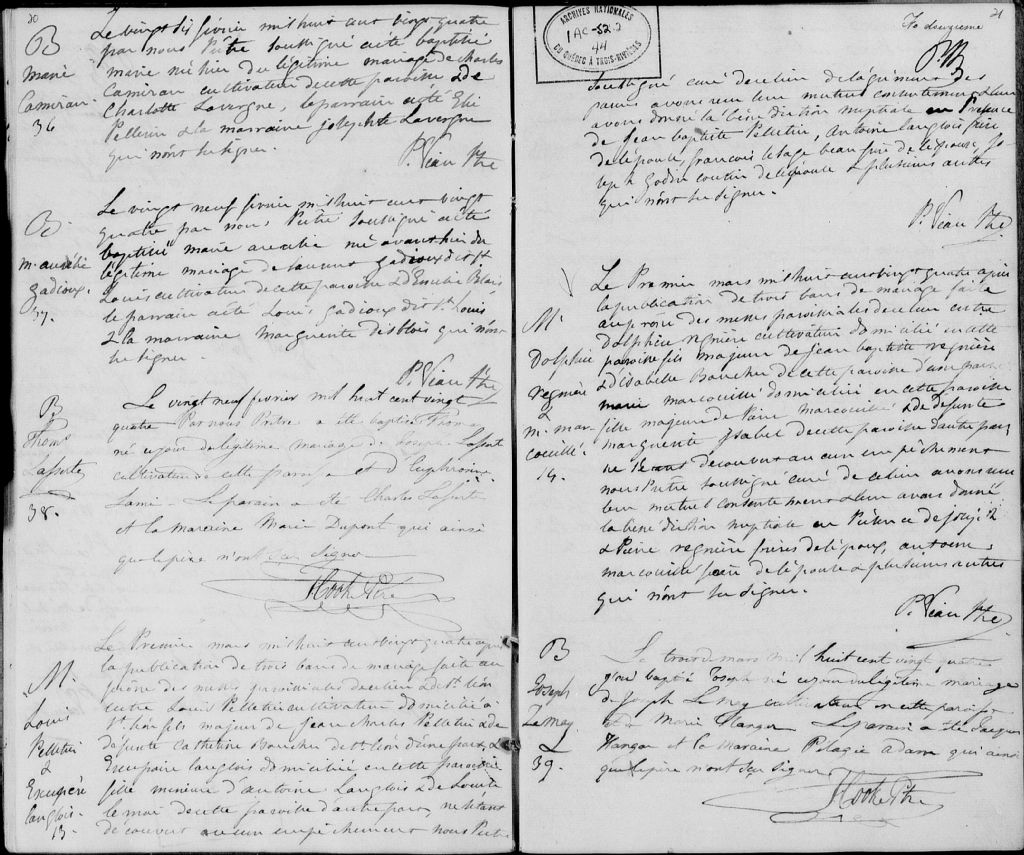 20
B
Marie
Camiran
36
Le vingt six février mil huit cent vingt quatre
par nous Prêtre soussigné a été baptisée
marie né hier du légitime mariage de charles
Camiran cultivateur de cette paroisse & de
Charlotte Lavergne, le parrain a été Eli
Pelletier & la marraine josephte Lavergne
qui n'ont su signer.
P. Vian Ptre
B
m. aurélie
gadioux.
37.
Le vingt neuf février mil huit cent vingt
quatre par nous Prêtre soussigné a été
baptisée marie aurelie né avant hier du
légitime mariage de Laurent gadioux dit St
Louis cultivateur de cette paroisse & d'Eusebie Blais
le parrain a été Louis gadioux dit St Louis
& la marraine Marguerite desblois qui n'ont
su signer.
P. Vian Ptre
B
Thoms
Laforte
38.
Le vingt neuf fevrier mil huit cent vingt
quatre Par nous Prêtre a été baptisé Thomas
né ce jour du légitime mariage de Joseph Laforte
cultivateur de cette paroisse et d'Euphrosine
Lami - Le parain a été Charles Laforte
et la maraine Marie Dupont qui ainsi
que le père n'ont su signer
Hooke Ptre
M.
Louis
Pelletier
&
Exupère
langlois.
13.
Le Premier mars mil huit cent vingt quatre après
la publication de trois bans de mariage faite au
prône des messes paroissiales de ce lieu & de St. léon
entre Louis Pelletier cultivateur domicilié à
St léon fils majeur de jean charles Pelletier & de
défunte Catherine Boucher de St léon d'une part, &
Exupère langlois domiciliée en cette paroisse
fille mineure d'antoine Langlois & de Louise
le mai de cette paroisse d'autre part, ne s'étant
découvert aucun empêchement nous Prêtre
ARCHIVES NATIONALES
1 AC-52
44
DU QUÉBEC À TROIS-RIVIÈRES
21
fo deuxieme
soussigné curé de ce lieu de l'agrément des
parens avons reçu leur mutuel consentement & leur
avons donné la bénédiction nuptiale en Présence
de Jean baptiste Pelletier, Antoine langlois frère
de l'épouse, françois lesage beau frère de l'épouse, jo-
seph godin cousin de l'épouse & plusieurs autres
qui n'ont su signer.
P. Vian Ptre
M.
Dolphice
regnière
&
m. mar-
couillé.
14.
Le Premier mars mil huit cent vingt quatre après
la publication de trois bans de mariage faite
au prône des messes paroissiales de ce lieu entre
Dolphice regnière cultivateur domicilié en cette
paroisse fils majeur de jean baptiste regnière
& d'isabelle Boucher de cette paroisse d'une part
marie marcouillé domiciliée en cette paroisse
fille majeure de Pierre marcouillé & de défunte
marguerite isabel de cette paroisse d'autre part
ne s'étant découvert aucun empêchement
nous Prêtre soussigné curé de ce lieu avons reçu
leur mutuel consentement & leur avons donné
la bénédiction nuptiale en Présence de joseph
& Pierre regnière frères de l'époux, antoine
marcouillé frère de l'épouse & plusieurs autres
qui n'ont su signer.
P. Vian Ptre
B
Joseph
Lemay
39.
Le trois de mars mil huit cent vingt quatre
fut baptisé Joseph né ce jour du légitime mariage
de Joseph Le may cultivateur en cette paroisse
et de Marie Hangor Le parain a été Jacques
Hangor et la maraine Pelagie adam qui ainsi
que le père n'ont su signer
Hooke Ptre